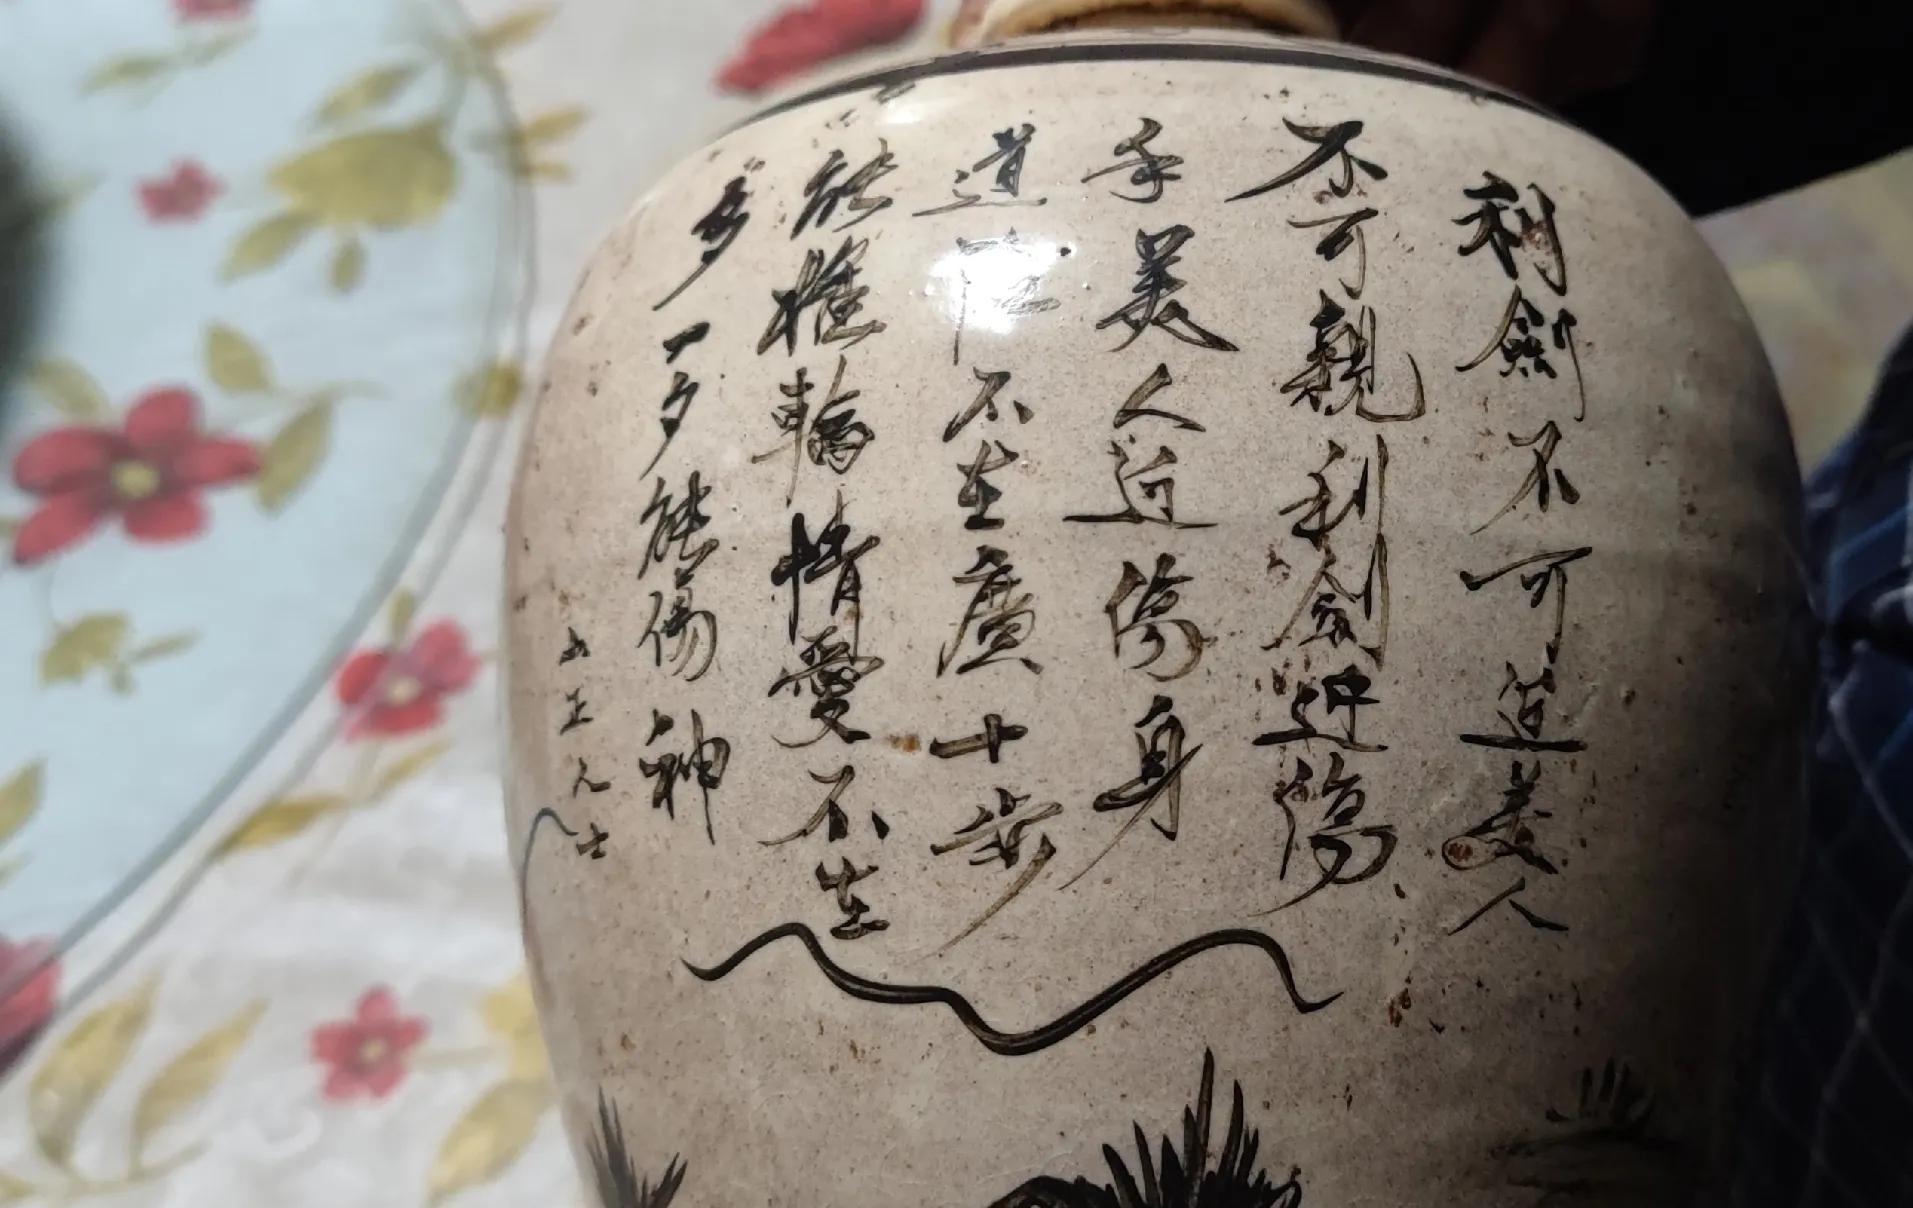 利劍不可近美人
不可親利劍近傷
手美人近傷身
道險不在廣十步
能摧輪情愛不在
多一夕能傷神
正元士